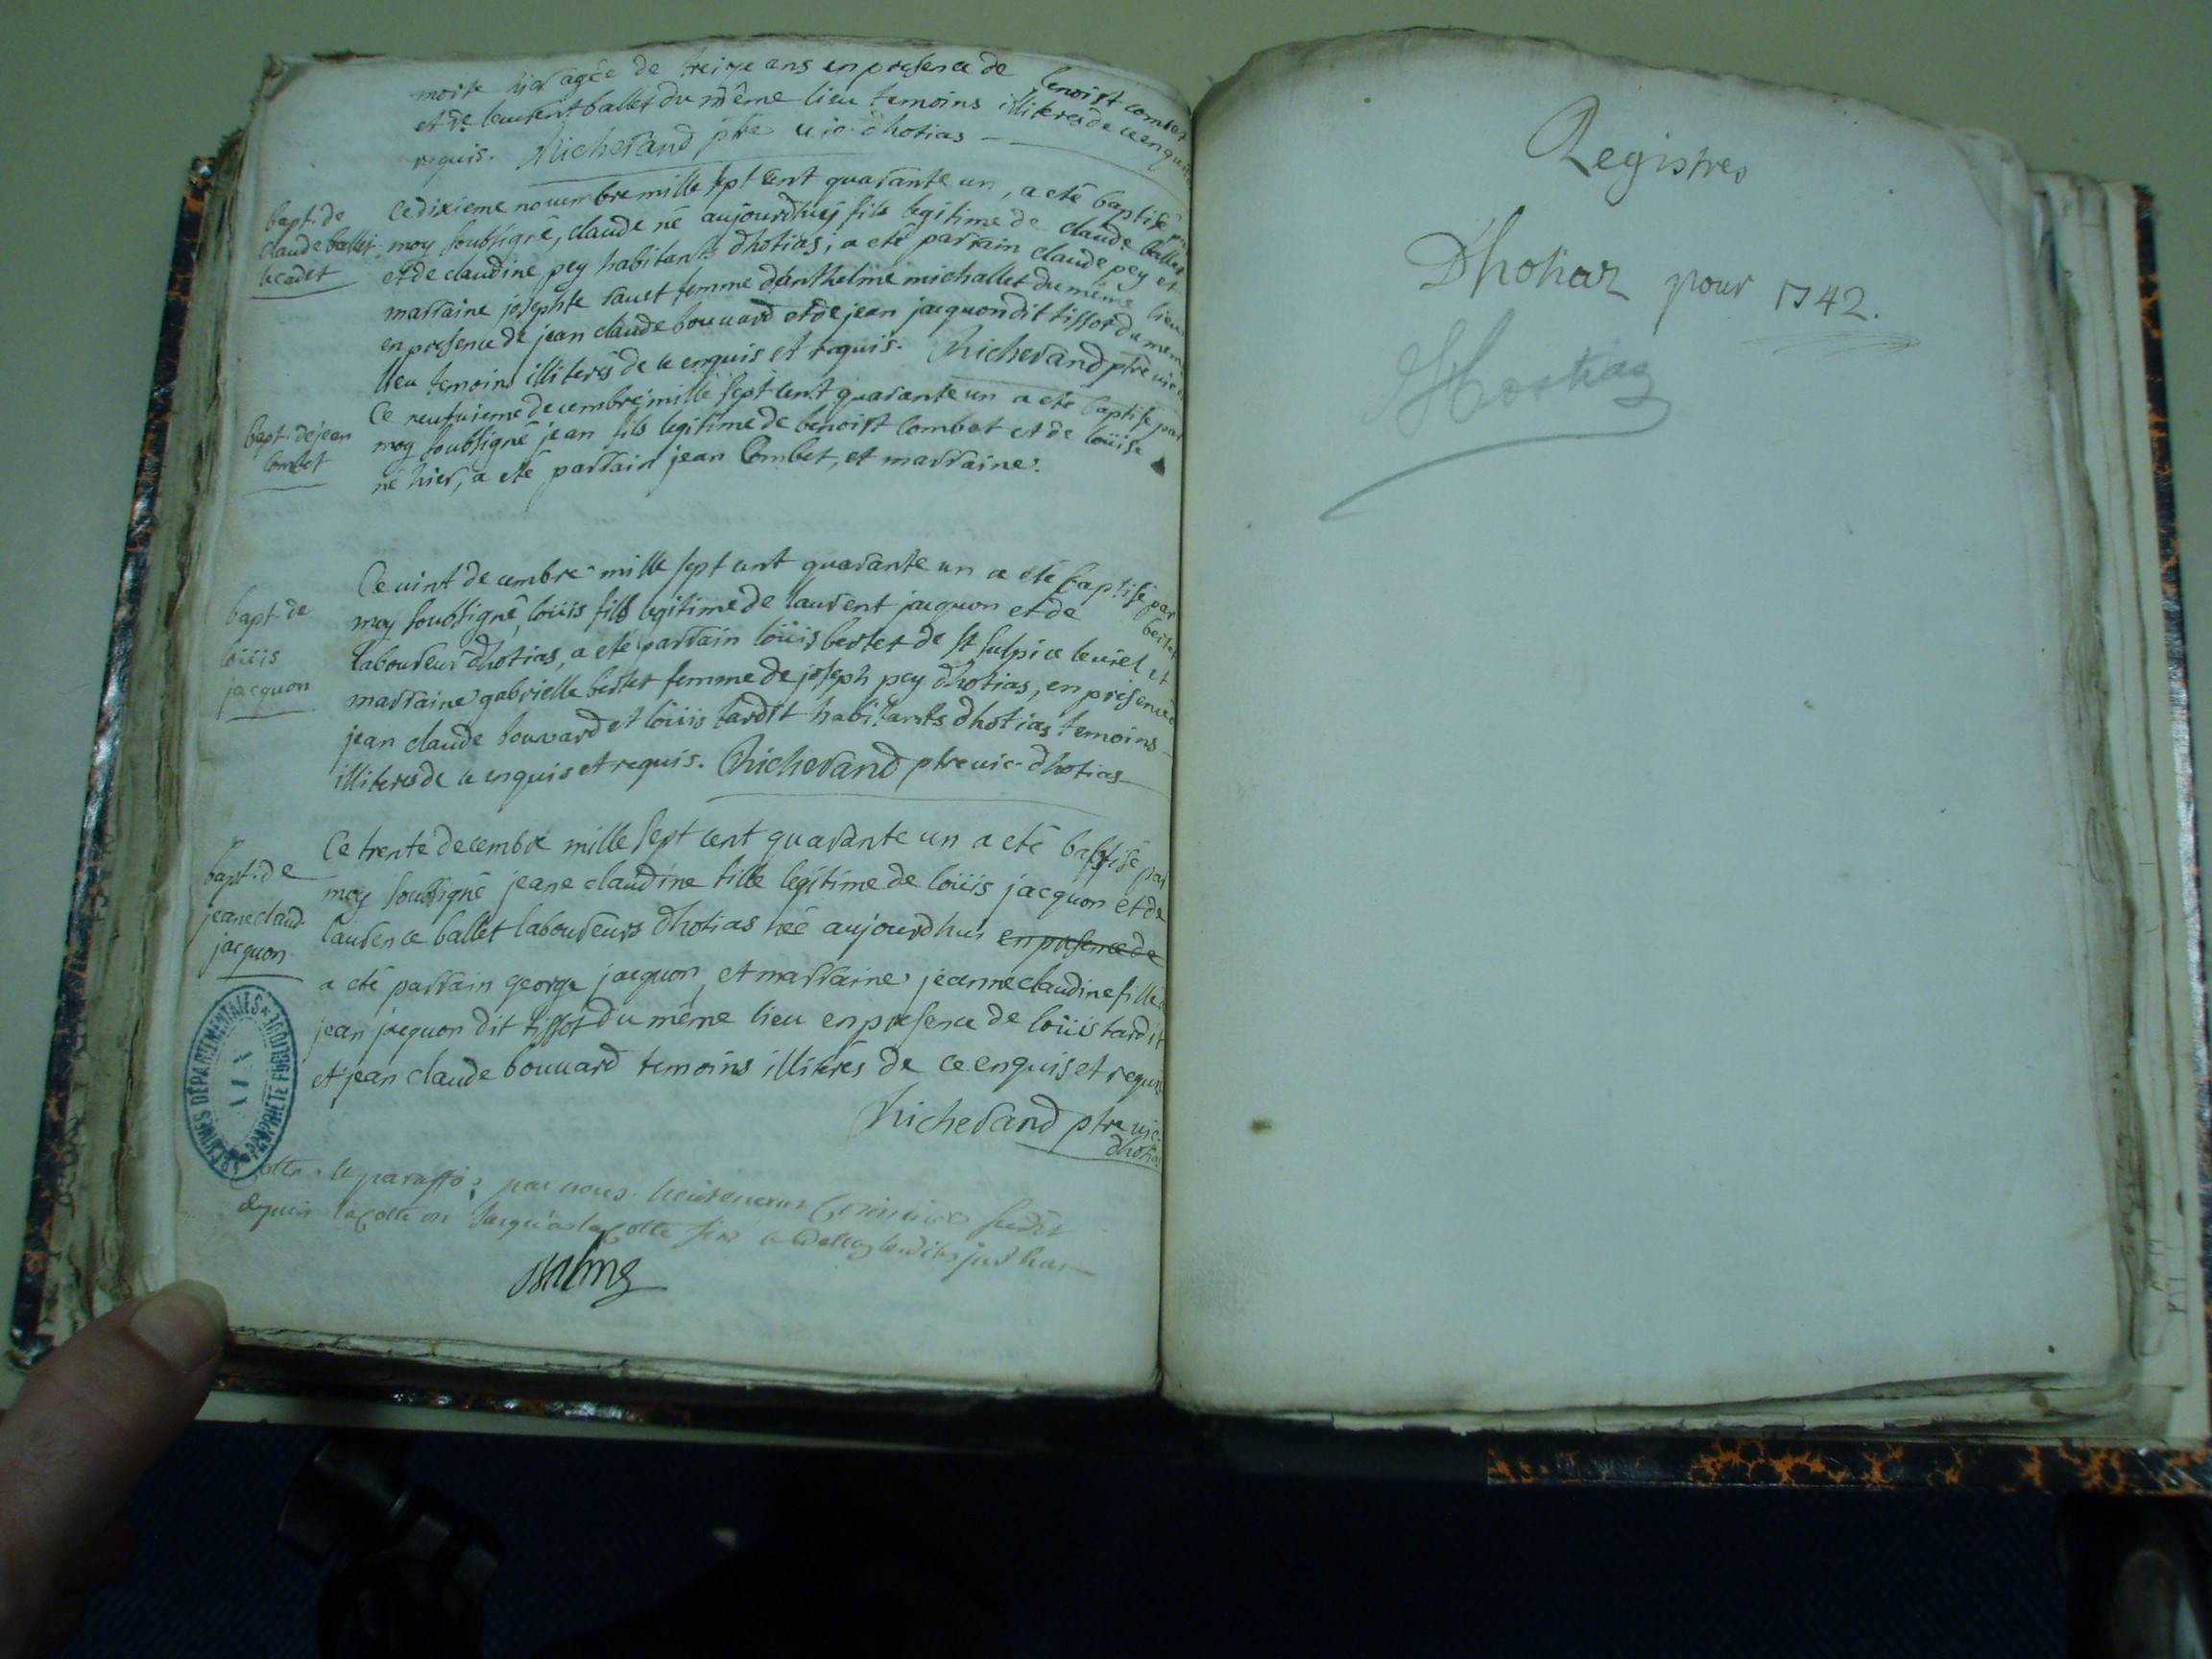 morte hier agée de treize ans en presence de benoist combet
et de laurent ballet du même lieu temoins illiteres de ce enquis
requis. Richerand ptre vic. dhotias
bapt. de
claude ballet
le cadet
Ce dixieme novembre mille sept cent quarante un, a eté baptisé par
moy soubsigné, claude né aujourdhuy fils legitime de claude ballet
et de claudine pey habitants dhotias; a eté parrain claude pey et
marraine josephte femme danthelme michallet du même lieu
en presence de jean claude bouuard et de jean jacquon dit tissot du meme
lieu temoins illiterés de ce enquis et requis. Richerand ptre vic
bapt. de jean
combet
Ce neufuieme decembre mille sept cent quarante un a eté baptisé par
moy soubsigné jean fils legitime de benoist combet et de loüise
né hier, a eté parrain jean Combet, et marraine.
bapt. de
loüis
jacquon
Ce vint decembre mille sept cent quarante un a eté baptisé par
moy soubsigné, loüis fils legitime de laurent jacquon et de bertet
laboureur dhotias, a eté parrain loüis bertet de st sulpice le viel et
marraine gabrielle bertet femme de joseph pey dhotias, en presence
jean claude bouvard et loüis tardit habitants dhotias temoins
illiteres de ce enquis et requis. Richerand ptre vic. dhotias
bapt. de
jeane claud.
jacquon
Ce trente decembre mille sept cent quarante un a eté baptisé par
moy soubsigné jeane claudine fille legitime de loüis jacquon et de
laurence ballet laboureurs dhotias née aujourdhui en presence de
a eté parrain george jacquon, et marraine jeanne claudine fille
jean jacquon dit tissot du même lieu en presence de loüis tardit
et jean claude bouuard temoins illiterés de ce enquis et requis
Richerand ptre vic.
dhotias
ARCHIVES DÉPARTEMENTALES
AIN
PROPRIÉTÉ PUBLIQUE
par nous lieutenant
depuis la cotte jusqu'a la cotte
Registres
Dhotiaz pour 1742.
Hostiaz